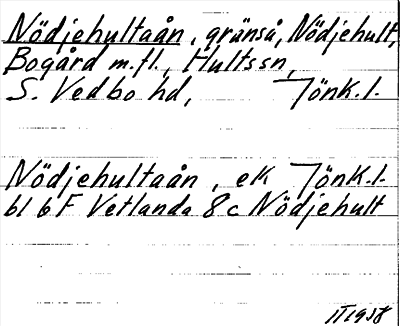 Nödjehultaån, gränså, Nödjehult,
Bogård m.fl., Hults sn,
S. Vedbo hd, Jönk.l.
Nödjehultaån, ek Jönk.l.
bl 6 F Vetlanda 8c Nödjehult
II 1958